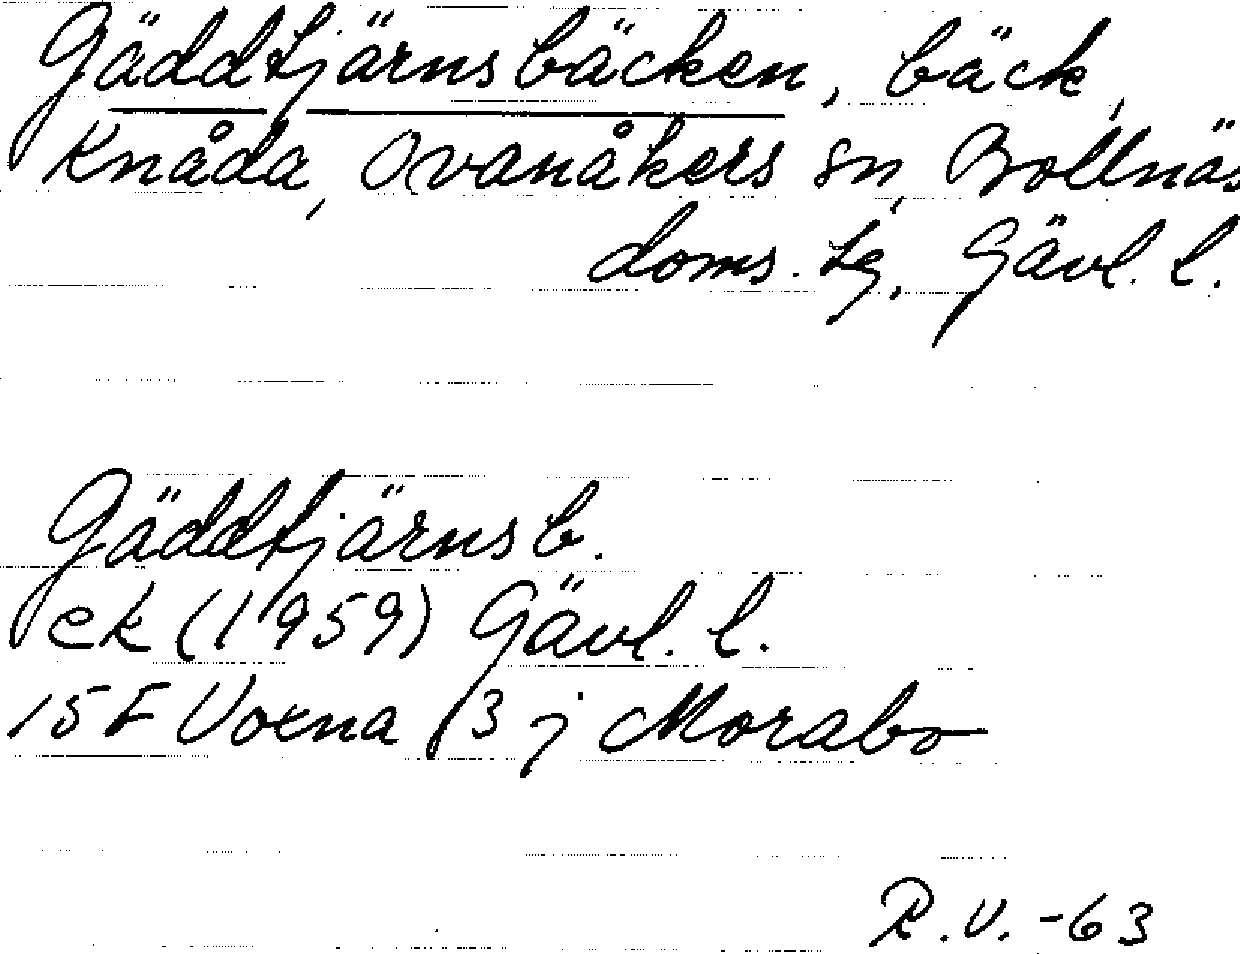 Gäddtjärnsbäcken, bäck,
Knåda, Ovanåkers sn, Bollnäs
doms. tg, Gävl. l.
Gäddtjärnsb.
ek (1959) Gävl. l.
15 F Voxna 3 j Morabo
R.V. -63